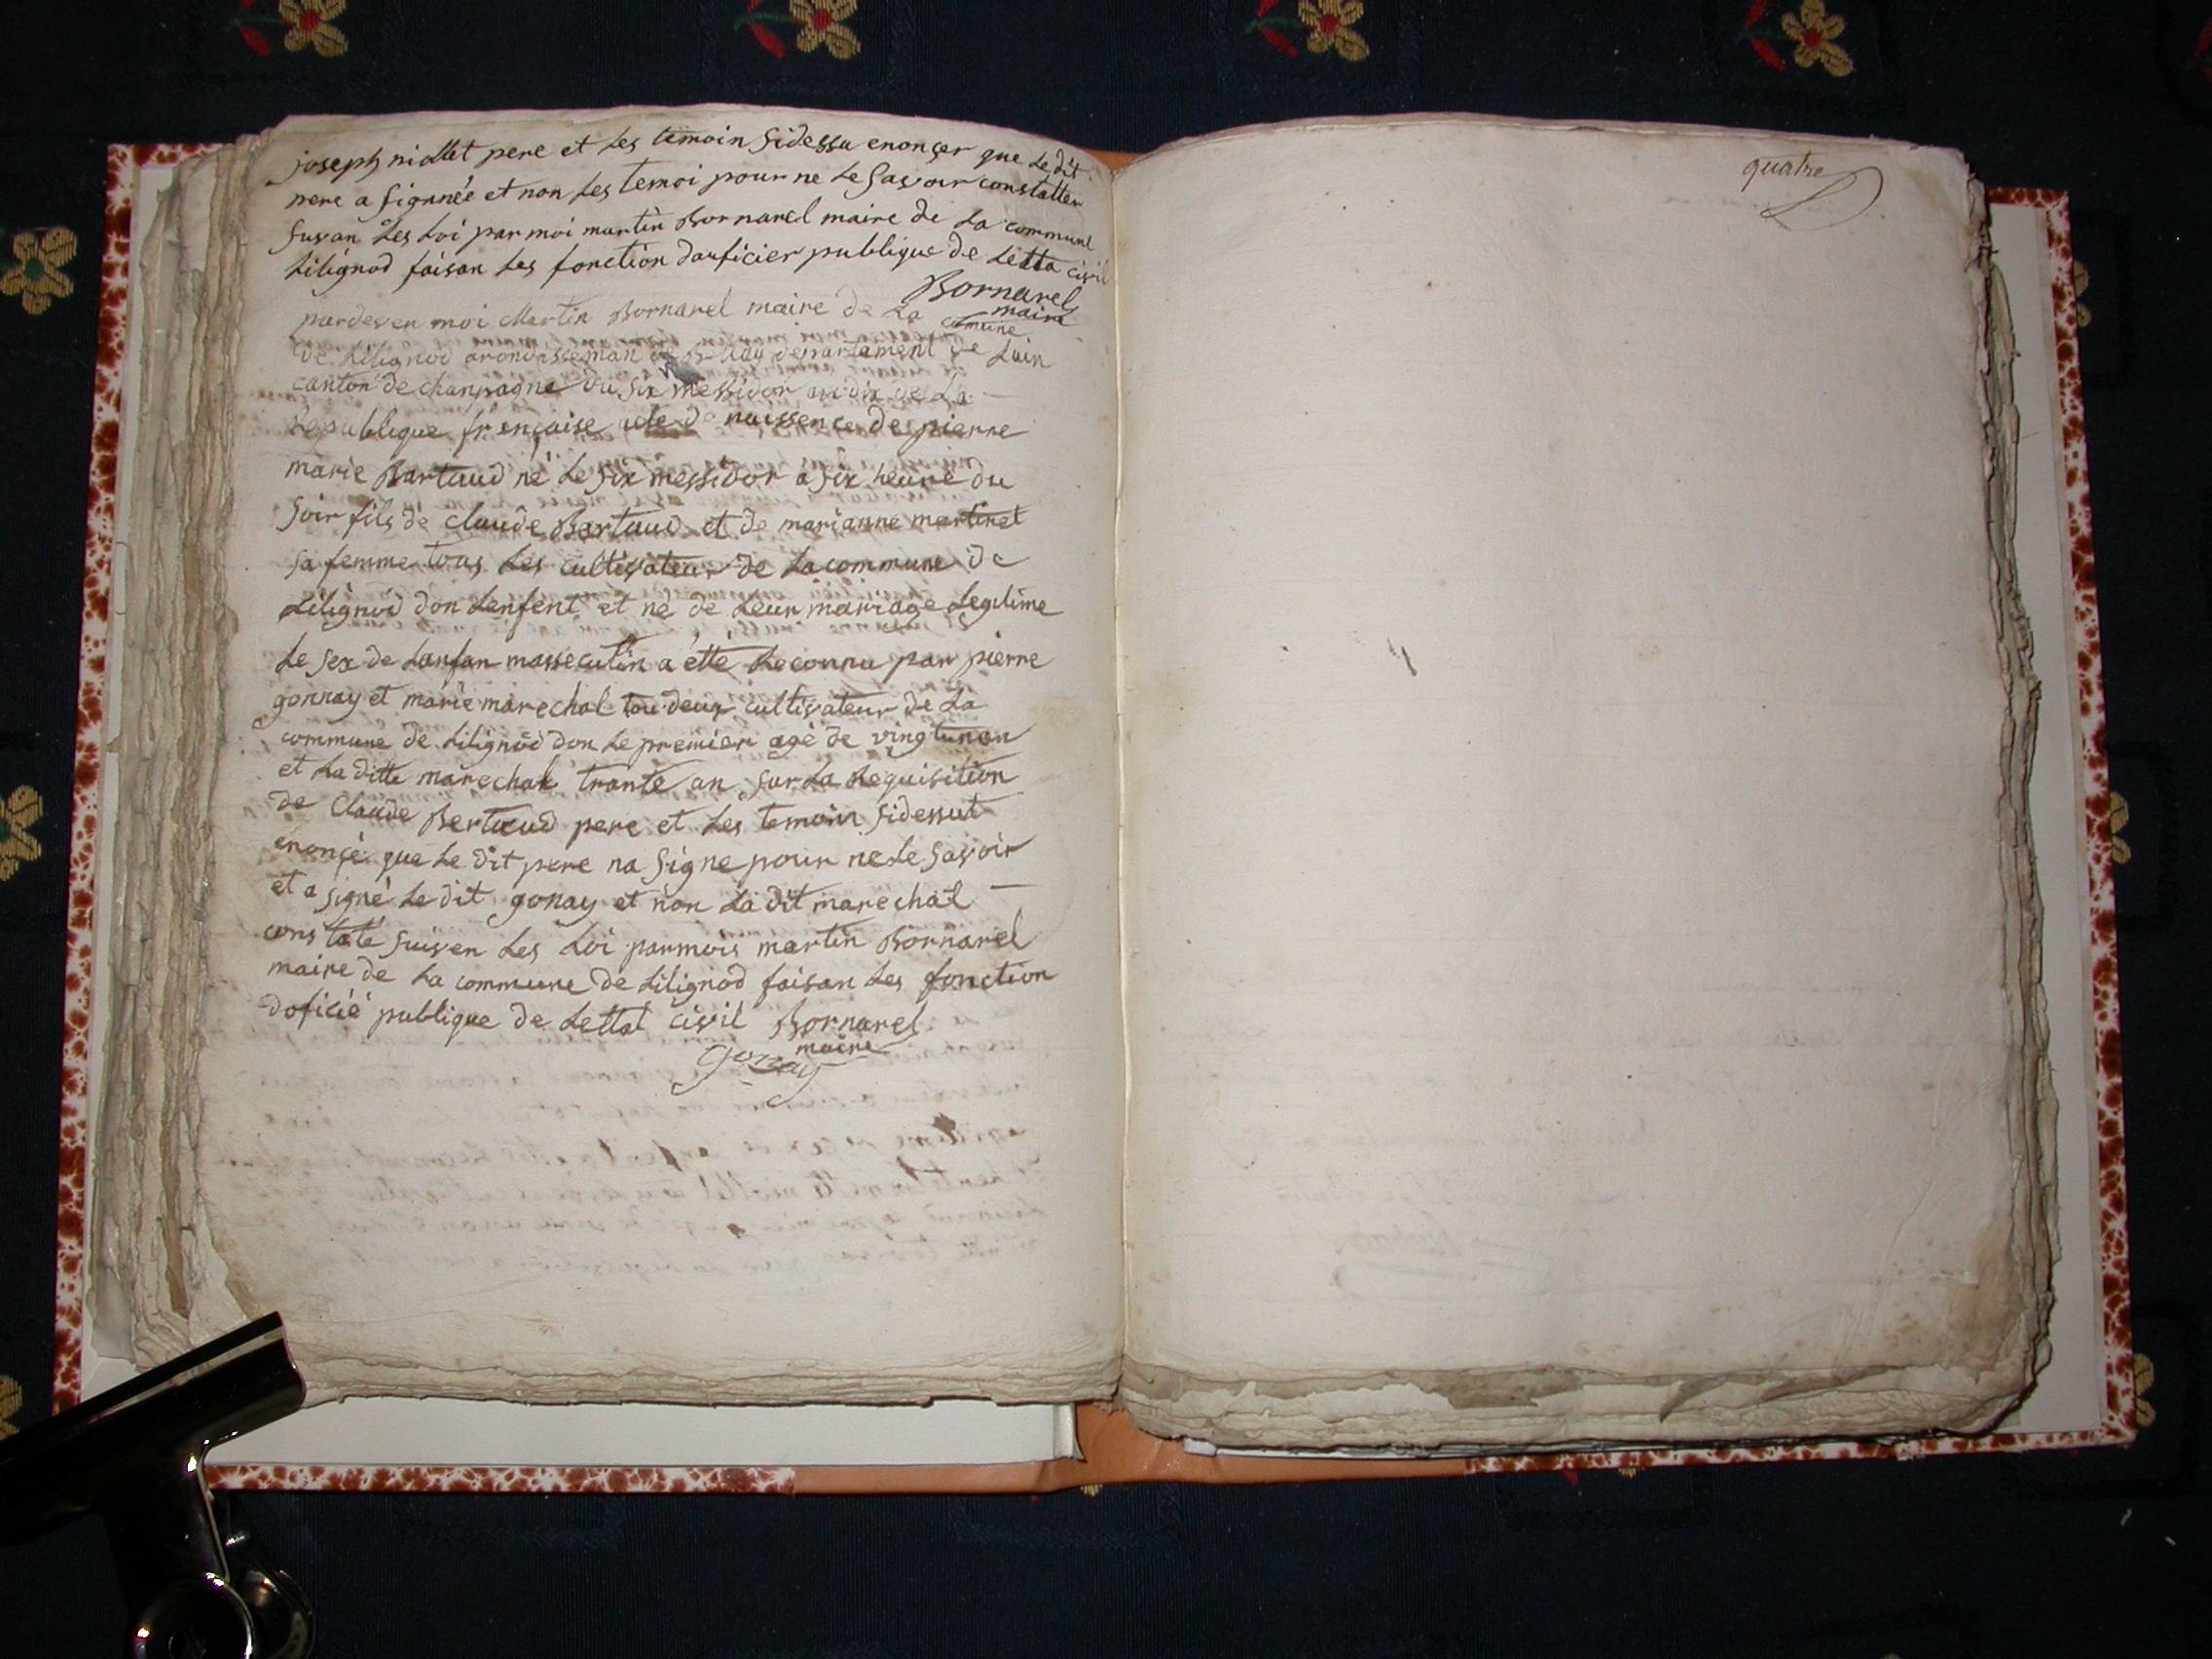 joseph niollet pere et Les temoin Sidessu enonçer que Le dit
pere a signnée et non Les temoi pour ne Le Savoir constatter
suvan Les Loi par moi martin Bornarel maire de La commune
Lilignod faisan Les fonction dauficier publique de Letta civil
Bornarel
maire
pardeven moi Martin Bornarel maire de La comune
de Lilignod arondisseman de Belay departament de Lain
canton de chanpagne du six messidor an dix de La
Republique française acte de naissence de pierre
marie Bartaud né Le six messidor a six heure du
Soir fils de claude Bertaud et de marianne martinet
sa femme tous Les cultivateur de La commune de
Lilignod don Lenfent et né de Leur mariage Legitime
Le sex de Lanfan masseculin a etté Reconnu par pierre
gonnay et marie marechal tou deux cultivateur de La
commune de Lilignod don Le premier agé de vingtunan
et La ditte marechal trante an sur La Requisition
de Claude Bertaud pere et Les temoin Sidessut
enonçé que Le dit pere na signe pour ne Le Savoir
et a signé Le dit gonay et non La dit marechal
constaté suiven Les Loi parmois martin Bornarel
maire de La commune de Lilignod faisan Les fonction
doficié publique de Lettat civil Bornarel
maire
gonay
quatre